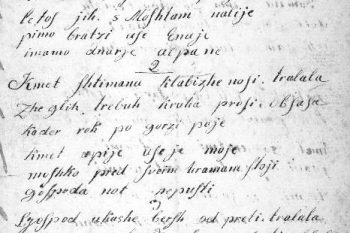 letos jih. s Moshtam nalije
pimo bratzi use Enaje
imamo dnarje al pa ne
2
Kmet shtimana klabizhe nosi. tralala
Zhe glih. trebuh kruha prosi. obsasa
kader rok po gorzi poje
kmet upije use je moje
moshko pred svoim hramam stoji
gospoda not nepusti
3
Gospod ukashe bersh od preti. tralala